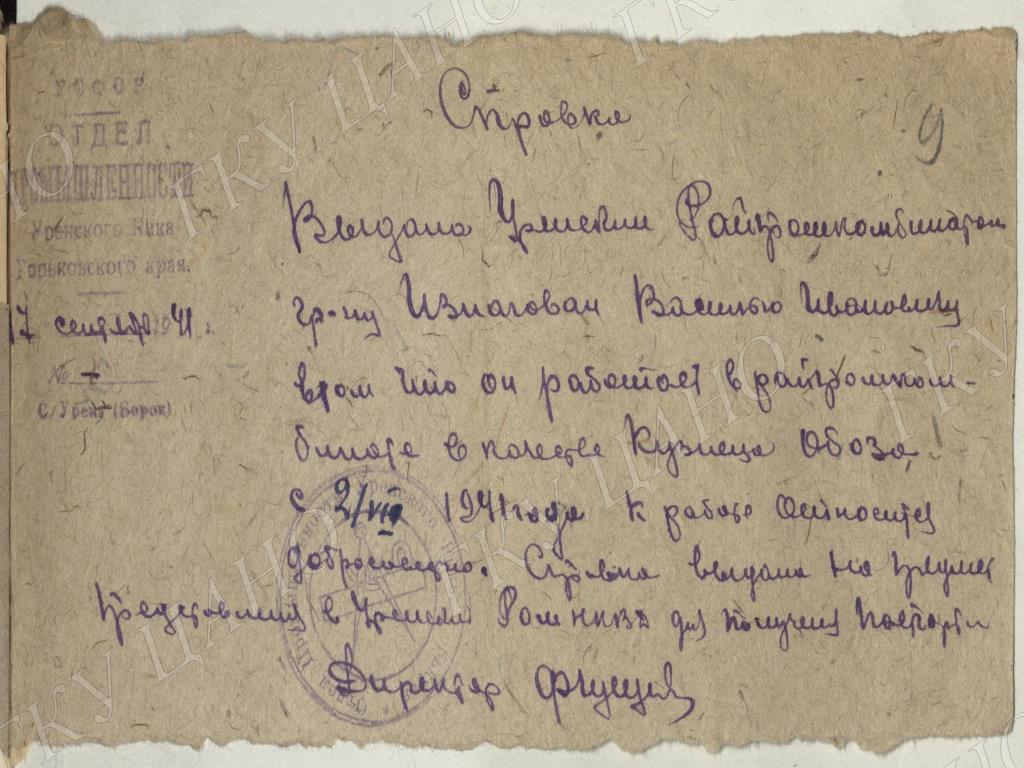 РСФСР
ОТДЕЛ
ПРОМЫШЛЕННОСТИ
Уренского Рика
Горьковского края.
17 сентября 1941 г.
№ -
С/Урень (Борок)
9
Справка
Выдана Уренским Райпромкомбинатом
гр-ну Василью Ивановичу
в том что он работает в райпромком-
бинате в качестве Кузнеца Обоза
с 2/VII 1941 года к работе относится
добросовестно. Справка выдана на предмет
представления в Уренский Ром НКВД для получения паспорта
Директор
ГКУ ЦАНО